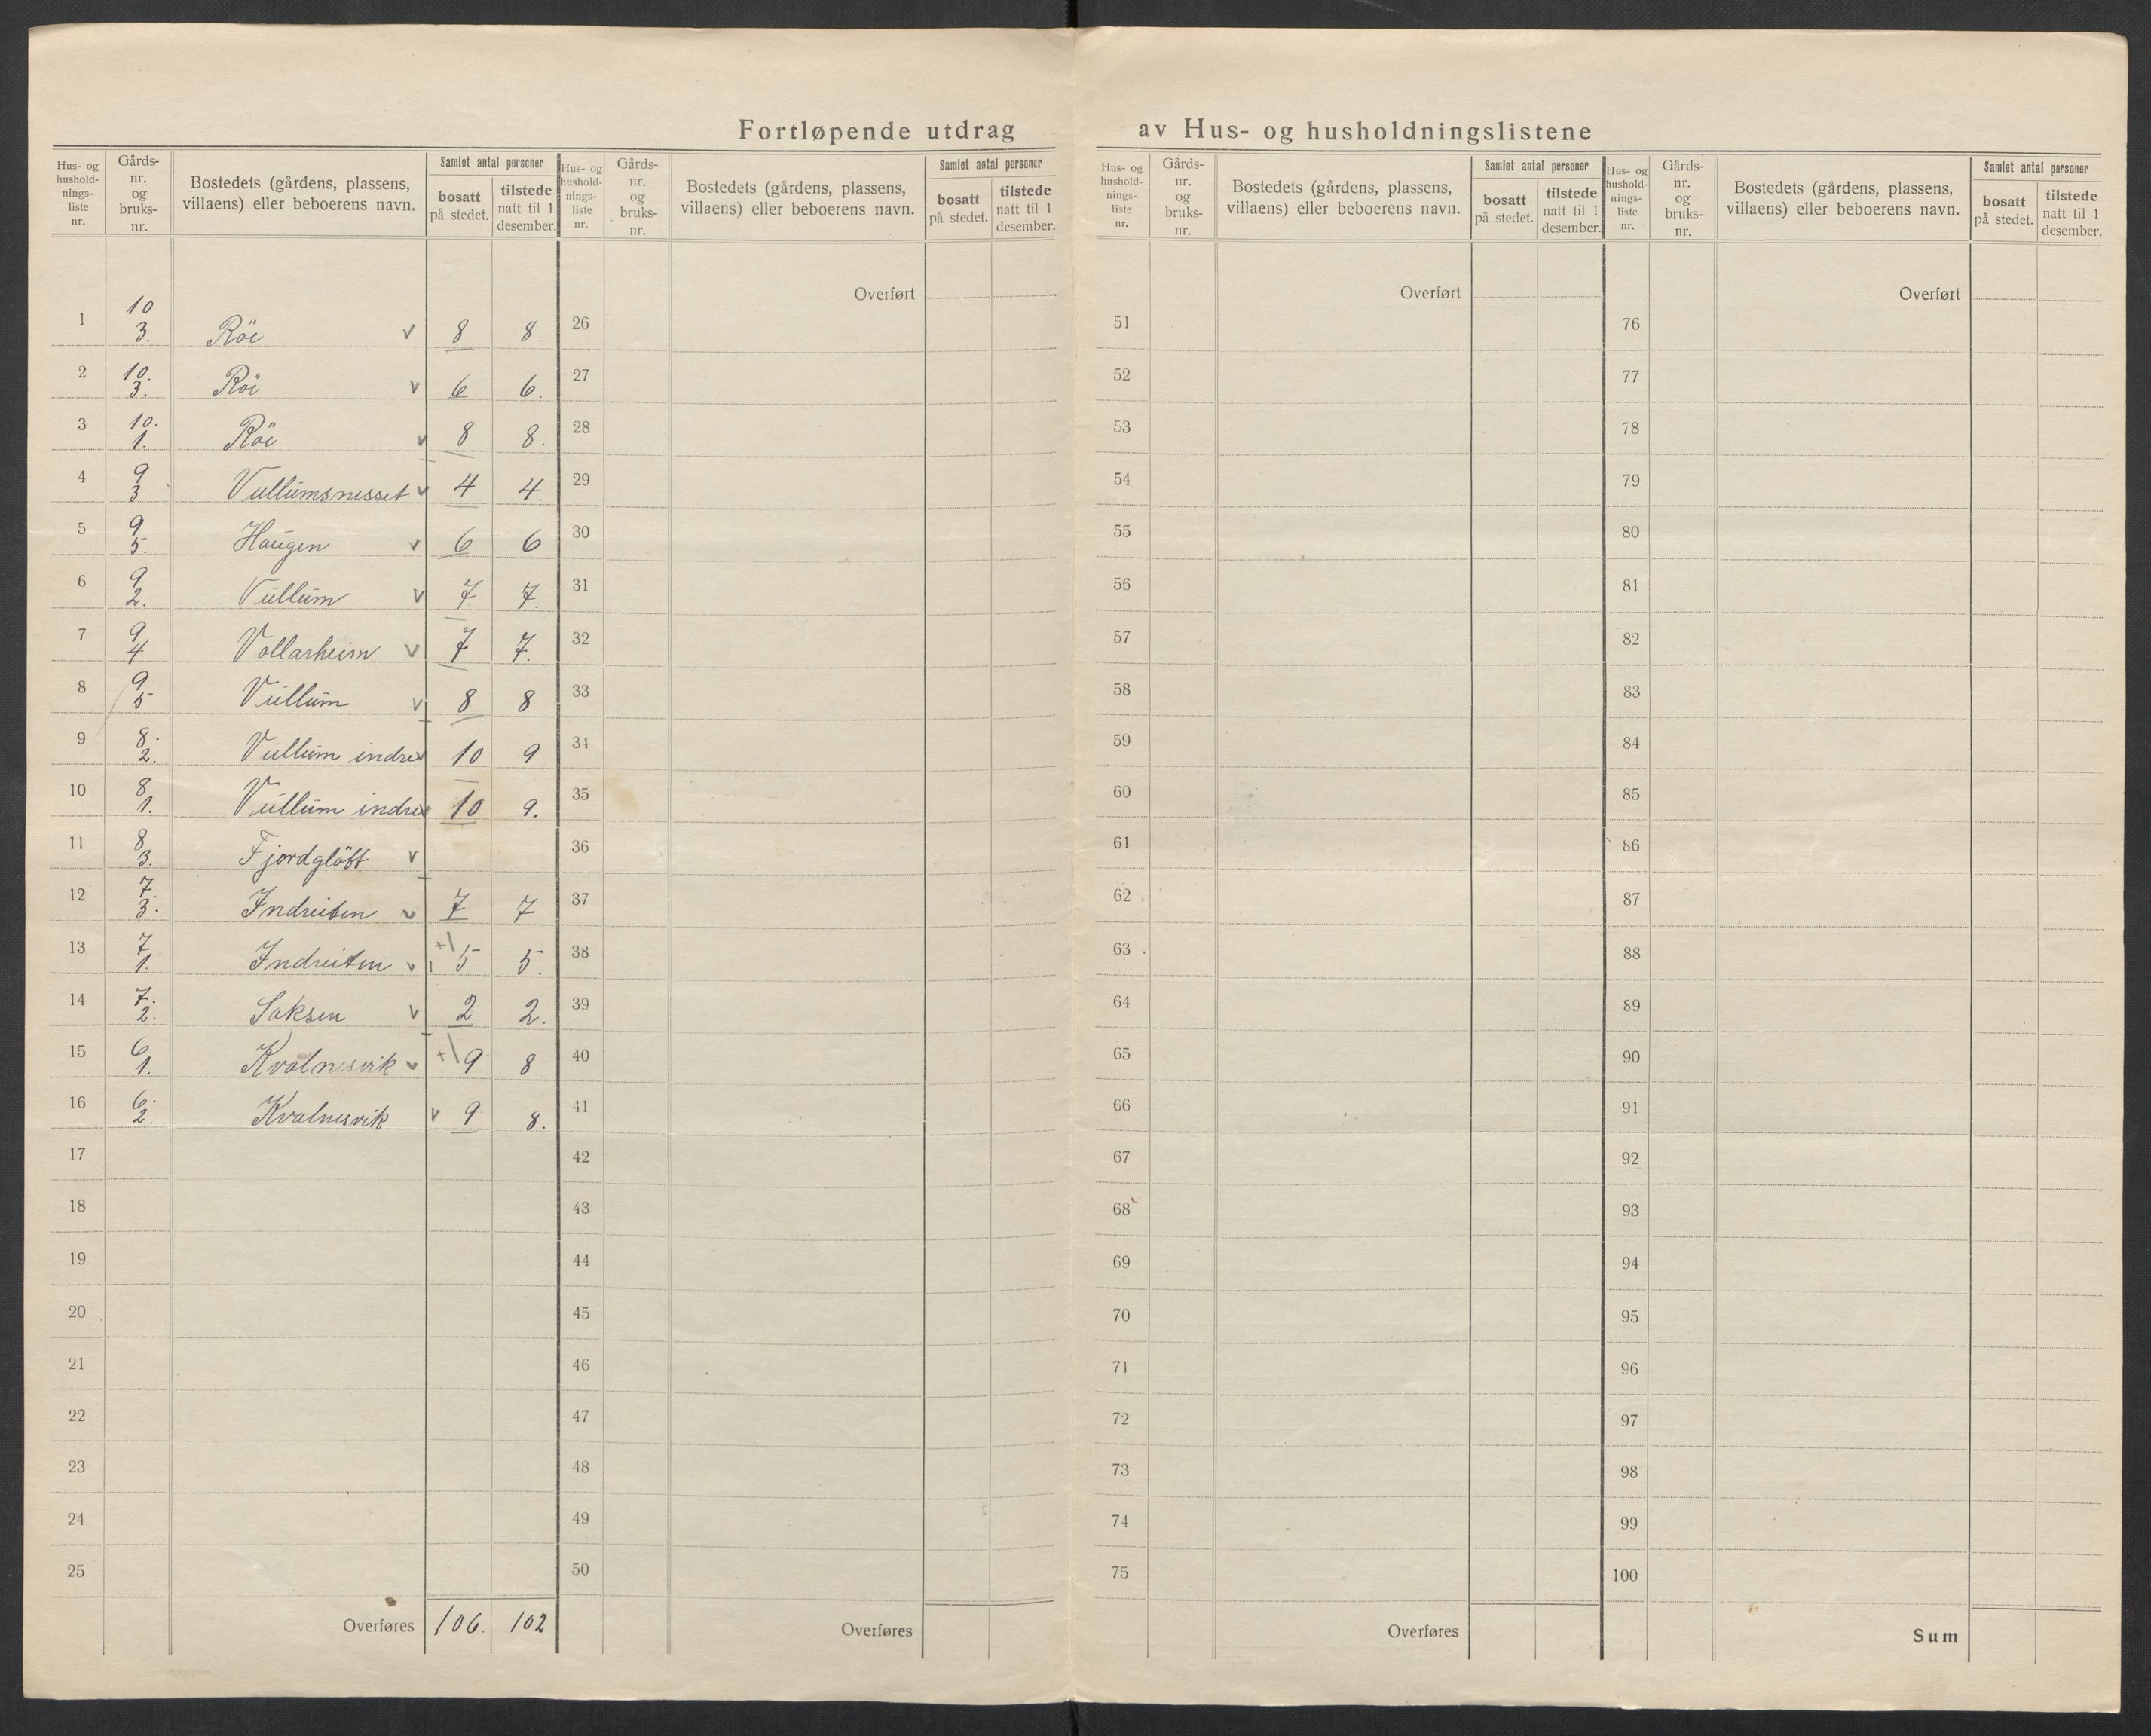 Fortløpende utdrag av Hus- og husholdningslistene
Hus- og hushold-nings-liste nr. | Gårds-nr. og bruks-nr. | Bostedets (gårdens, plassens, villaens) eller beboerens navn. | Samlet antal personer | bosatt på stedet. | tilstede natt til 1 desember.
Hus- og hushold-nings-liste nr. | Gårds-nr. og bruks-nr. | Bostedets (gårdens, plassens, villaens) eller beboerens navn. | Samlet antal personer | bosatt på stedet. | tilstede natt til 1 desember.
Hus- og hushold-nings-liste nr. | Gårds-nr. og bruks-nr. | Bostedets (gårdens, plassens, villaens) eller beboerens navn. | Samlet antal personer | bosatt på stedet. | tilstede natt til 1 desember.
Hus- og hushold-nings-liste nr. | Gårds-nr. og bruks-nr. | Bostedets (gårdens, plassens, villaens) eller beboerens navn. | Samlet antal personer | bosatt på stedet. | tilstede natt til 1 desember.
1 10 3. Röe v 8 8.
2 10. 3. Röe v 6 6.
3 10. 1. Röe v 8 8.
4 9 3 Vullumsnesset v 4 4.
5 9 5. Haugen v 6 6
6 9 2. Vullum v 7 7.
7 9 4 Vollarheim v 7 7.
8 9 5 Vullum v 8 8
9 8. 2. Vullum indre v 10 9
10 8 1. Vullum indre v 10 9.
11 8 3. Fjordglött v
12 7. 3. Indreiten v 7 7
13 7 1. Indreiten v +1 5 5.
14 7. 2. Saksen v 2 2.
15 6 1. Kvalnesvik v +1 9 8
16 6. 2. Kvalnesvik v 9 8.
17
18
19
20
21
22
23
24
25
Overføres 106. 102
Overført
26
27
28
29
30
31
32
33
34
35
36
37
38
39
40
41
42
43
44
45
46
47
48
49
50
Overføres
Overført
51
52
53
54
55
56
57
58
59
60
61
62
63
64
65
66
67
68
69
70
71
72
73
74
75
Overføres
Overført
76
77
78
79
80
81
82
83
84
85
86
87
88
89
90
91
92
93
94
95
96
97
98
99
100
Sum